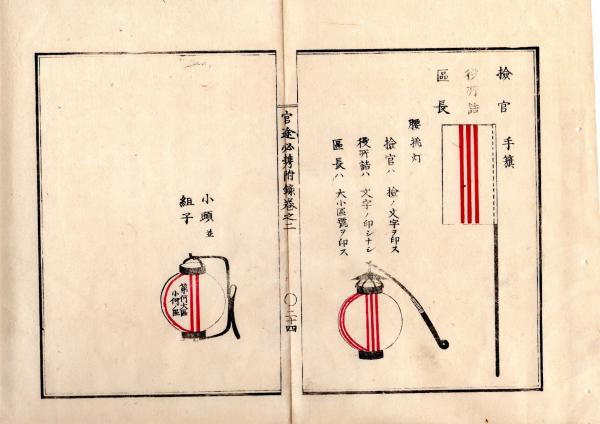 撿官
役所詰
區長
手籏
腰挑灯
撿官ハ 撿ノ文字ヲ印ス
役所詰ハ 文字ノ印シナシ
區長ハ 大小區號ヲ印ス
官途必携附錄卷之二
〇二十四
小頭並
組子
第何大區
小何ノ區